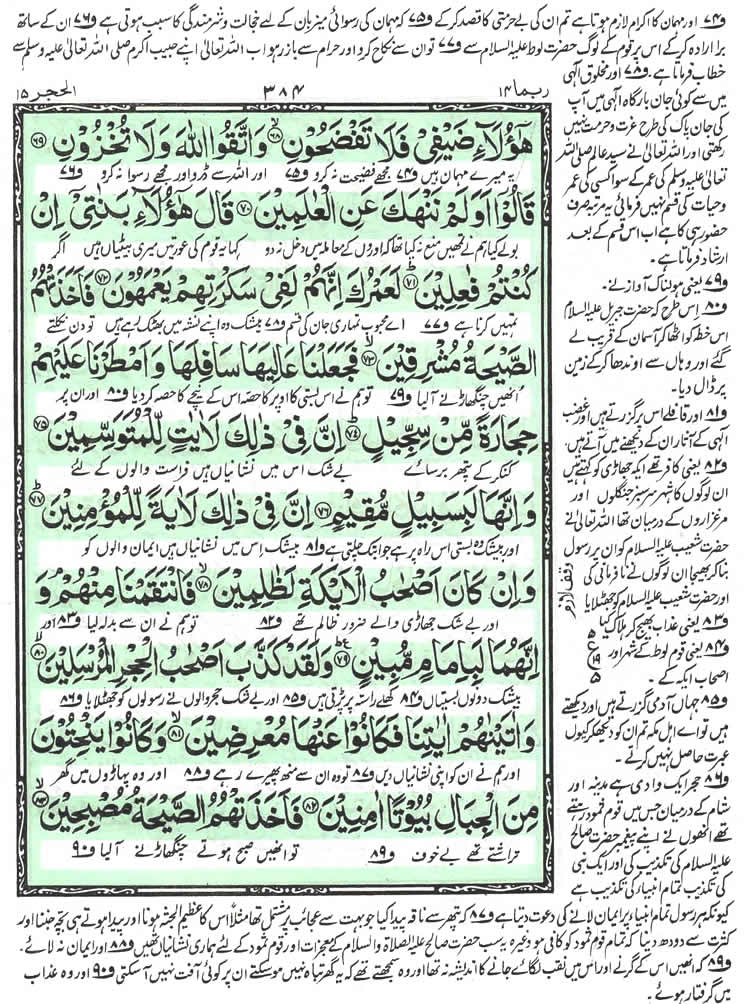 و۷۴ اور مہمان کا اکرام لازم ہوتا ہے تم ان کی بے حرمتی کا قصد کرکے و۷۵ کہ مہمان کی رسوائی میزبان کے لئے خجالت و شرمندگی کا سبب ہوتی ہے و۷۶ ان کے ساتھ
برا ارادہ کرکے اس پر قوم کے لوگ حضرت لوط علیہ السلام سے و۷۷ تو ان سے نکاح کرو اور حرام سے باز رہو اب اللہ تعالیٰ اپنے حبیب اکرم صلی اللہ تعالیٰ علیہ وسلم سے
خطاب فرماتا ہے۔ و۷۸ اور مخلوق الٰہی
ربما ۱۴
۳۸۴
الحجر ۱۵
میں سے کوئی جان بارگاہ الٰہی میں آپ
کی جان پاک کی طرح عزت و حرمت نہیں
رکھتی اور اللہ تعالیٰ نے سید عالم صلی اللہ
تعالیٰ علیہ وسلم کی عمر کے سوا کسی کی عمر
و حیات کی قسم نہیں فرمائی یہ مرتبہ صرف
حضور ہی کا ہے اب اس قسم کے بعد
ارشاد فرماتا ہے۔
و۷۹ یعنی ہولناک آواز نے۔
و۸۰ اس طرح کہ حضرت جبریل علیہ السلام
اس خطہ کو اٹھا کر آسمان کے قریب لے
گئے اور وہاں سے اوندھا کرکے زمین
پر ڈال دیا۔
و۸۱ اور قافلے اس پر گزرتے ہیں اور غضب
الٰہی کے آثار ان کے دیکھنے میں آتے ہیں۔
و۸۲ یعنی کافر تھے ایکہ جھاڑی کو کہتے ہیں
ان لوگوں کا شہر سرسبز جنگلوں اور
مرغزاروں کے درمیان تھا اللہ تعالیٰ نے
حضرت شعیب علیہ السلام کو ان پر رسول
بنا کر بھیجا ان لوگوں نے نافرمانی کی
اور حضرت شعیب علیہ السلام کو جھٹلایا
و۸۳ یعنی عذاب بھیج کر ہلاک کیا
و۸۴ یعنی قوم لوط کے شہر اور
اصحاب ایکہ کے۔
و۸۵ جہاں آدمی گزرتے ہیں اور دیکھتے
ہیں تو اے اہل مکہ تم ان کو دیکھ کر کیوں
عبرت حاصل نہیں کرتے۔
و۸۶ حجر ایک وادی ہے مدینہ اور
شام کے درمیان جس میں قوم ثمود رہتے
تھے انھوں نے اپنے پیغمبر حضرت صالح
علیہ السلام کی تکذیب کی اور ایک نبی
کی تکذیب تمام انبیاء کی تکذیب ہے
هٰٓؤُلَآءِ ضَيْفِيْ فَلَا تَفْضَحُوْنِ ۶۸ وَاتَّقُوا اللّٰهَ وَلَا تُخْزُوْنِ ۶۹
یہ میرے مہمان ہیں و۷۴ مجھے فضیحت نہ کرو و۷۵ اور اللہ سے ڈرو اور مجھے رسوا نہ کرو و۷۶
قَالُوْٓا اَوَلَمْ نَنْهَكَ عَنِ الْعٰلَمِيْنَ ۷۰ قَالَ هٰٓؤُلَآءِ بَنٰتِيْٓ اِنْ
بولے کیا ہم نے تمھیں منع نہ کیا تھا کہ اوروں کے معاملہ میں دخل نہ دو کہا یہ قوم کی عورتیں میری بیٹیاں ہیں اگر
كُنْتُمْ فٰعِلِيْنَ ۷۱ لَعَمْرُكَ اِنَّهُمْ لَفِيْ سَكْرَتِهِمْ يَعْمَهُوْنَ ۷۲ فَاَخَذَتْهُمُ
تمھیں کرنا ہے و۷۷ اے محبوب تمہاری جان کی قسم و۷۸ بیشک وہ اپنے نشہ میں بھٹک رہے ہیں تو دن نکلتے
الصَّيْحَةُ مُشْرِقِيْنَ ۷۳ فَجَعَلْنَا عَالِيَهَا سَافِلَهَا وَاَمْطَرْنَا عَلَيْهِمْ
انھیں چنگھاڑ نے آلیا و۷۹ تو ہم نے اس بستی کا اوپر کا حصہ اس کے نیچے کا حصہ کر دیا و۸۰ اور ان پر
حِجَارَةً مِّنْ سِجِّيْلٍ ۷۴ اِنَّ فِيْ ذٰلِكَ لَاٰيٰتٍ لِّلْمُتَوَسِّمِيْنَ ۷۵
کنکر کے پتھر برسائے بے شک اس میں نشانیاں ہیں فراست والوں کے لئے
وَاِنَّهَا لَبِسَبِيْلٍ مُّقِيْمٍ ۷۶ اِنَّ فِيْ ذٰلِكَ لَاٰيَةً لِّلْمُؤْمِنِيْنَ ۷۷
اور بیشک وہ بستی اس راہ پر ہے جو اب تک چلتی ہے و۸۱ بیشک اس میں نشانیاں ہیں ایمان والوں کو
وَاِنْ كَانَ اَصْحٰبُ الْاَيْكَةِ لَظٰلِمِيْنَ ۷۸ فَانْتَقَمْنَا مِنْهُمْ وَ
اور بے شک جھاڑی والے ضرور ظالم تھے و۸۲ تو ہم نے ان سے بدلہ لیا و۸۳ اور
اِنَّهُمَا لَبِاِمَامٍ مُّبِيْنٍ ۷۹ وَلَقَدْ كَذَّبَ اَصْحٰبُ الْحِجْرِ الْمُرْسَلِيْنَ ۸۰
بیشک دونوں بستیاں و۸۴ کھلے راستہ پر پڑتی ہیں و۸۵ اور بے شک حجر والوں نے رسولوں کو جھٹلایا و۸۶
وَاٰتَيْنٰهُمْ اٰيٰتِنَا فَكَانُوْا عَنْهَا مُعْرِضِيْنَ ۸۱ وَكَانُوْا يَنْحِتُوْنَ
اور ہم نے ان کو اپنی نشانیاں دیں و۸۷ تو وہ ان سے منھ پھیرے رہے و۸۸ اور وہ پہاڑوں میں گھر
مِنَ الْجِبَالِ بُيُوْتًا اٰمِنِيْنَ ۸۲ فَاَخَذَتْهُمُ الصَّيْحَةُ مُصْبِحِيْنَ ۸۳
تراشتے تھے بے خوف و۸۹ تو انھیں صبح ہوتے چنگھاڑ نے آلیا و۹۰
وقف لازم
ع
۵
۱۹
۵
کیونکہ ہر رسول تمام انبیاء پر ایمان لانے کی دعوت دیتا ہے و۸۷ کہ پتھر سے ناقہ پیدا کیا جو بہت سے عجائب پر مشتمل تھا مثلاً اس کا عظیم الجثہ ہونا اور پیدا ہوتے ہی بچہ جننا اور
کثرت سے دودھ دینا کہ تمام قوم ثمود کو کافی ہو وغیرہ یہ سب حضرت صالح علیہ الصلاۃ والسلام کے معجزات اور قوم ثمود کے لئے ہماری نشانیاں تھیں و۸۸ اور ایمان نہ لائے۔
و۸۹ کہ انھیں اس کے گرنے اور اس میں نقب لگائے جانے کا اندیشہ نہ تھا اور وہ سمجھتے تھے کہ یہ گھر تباہ نہیں ہو سکتے ان پر کوئی آفت نہیں آسکتی و۹۰ اور وہ عذاب
میں گرفتار ہوئے۔